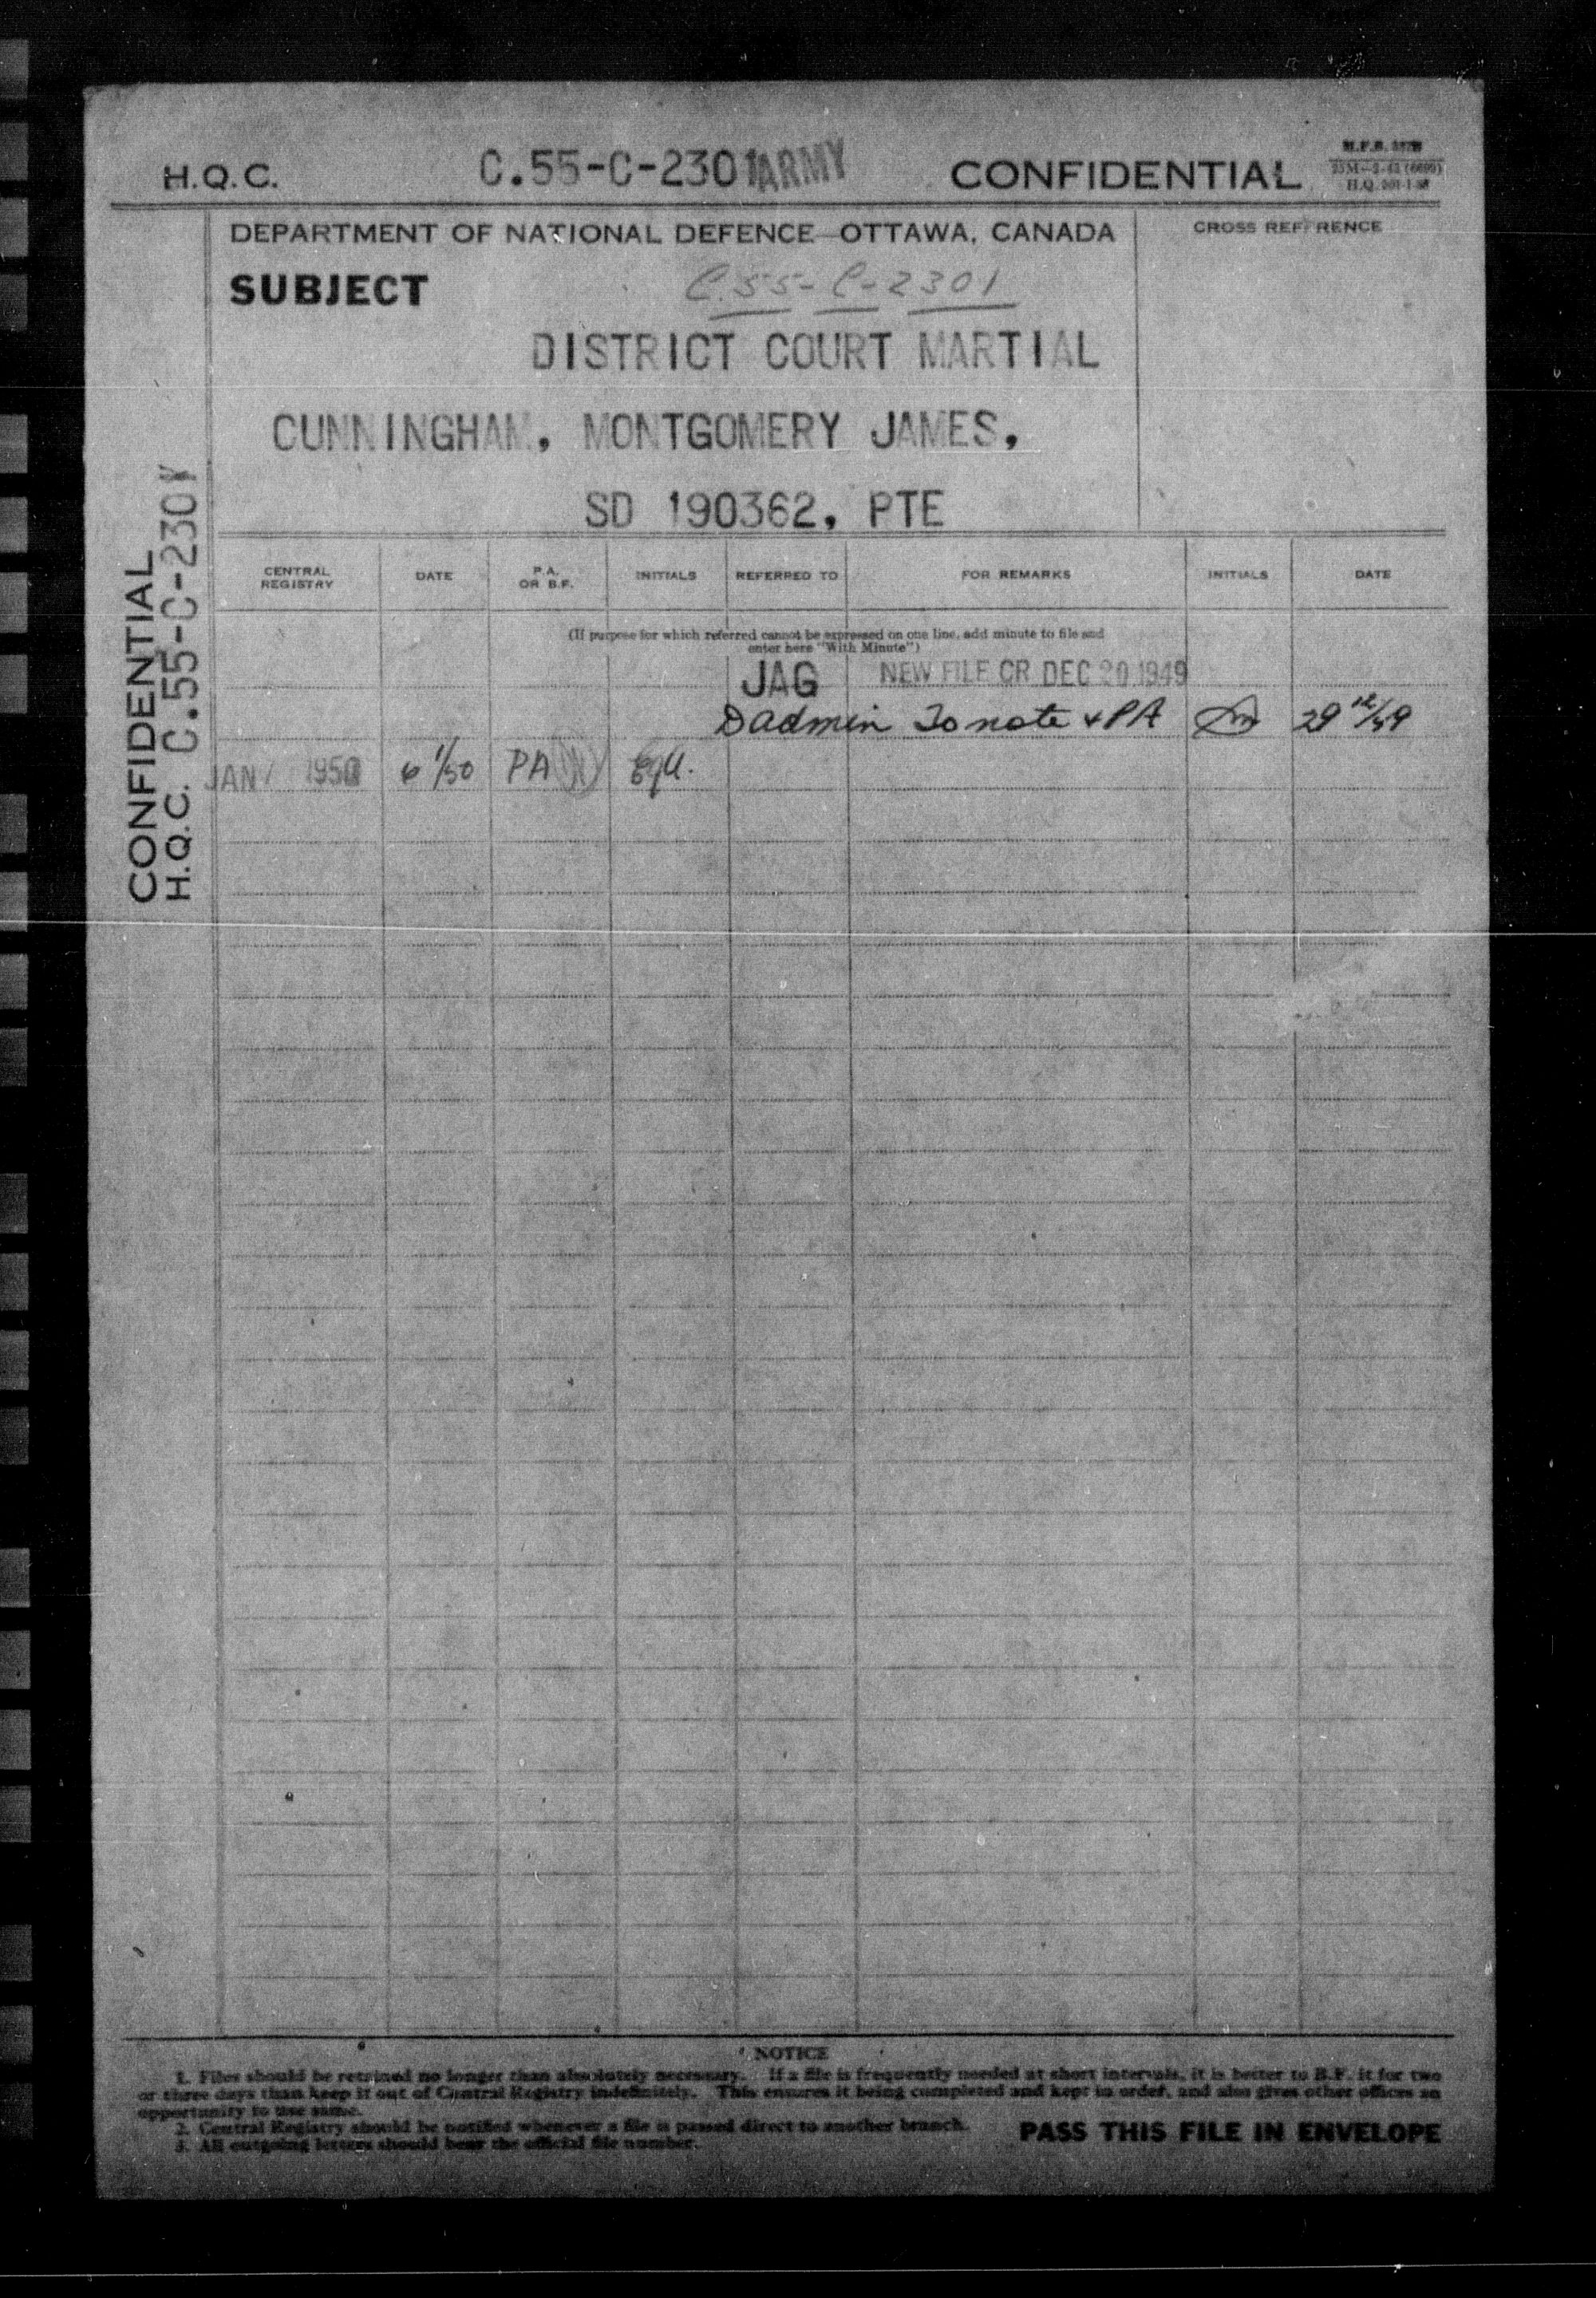 H.Q.C. C.55-C-2301 ARMY CONFIDENTIAL
DEPARTMENT OF NATIONAL DEFENCE—OTTAWA, CANADA
CROSS REFERENCE
SUBJECT
C.55-C-2301
DISTRICT COURT MARTIAL
CUNNINGHAM, MONTGOMERY JAMES,
SD 190362, PTE
CONFIDENTIAL
H.Q.C. C.55-C-2301
CENTRAL REGISTRY DATE P.A. OR B.F. INITIALS REFERRED TO FOR REMARKS INITIALS DATE
(If purpose for which referred cannot be expressed on one line, add minute to file and
enter here "With Minute")
JAG NEW FILE CR DEC 20 1949
Dadmin To note & PA 29 12/49
JAN 1950 6 1/50 PA
NOTICE
1. Files should be retained no longer than absolutely necessary. If a file is frequently needed at short intervals, it is better to B.F. it for two
or three days than keep it out of Central Registry indefinitely. This ensures it being completed and kept in order, and also gives other offices an
opportunity to use same.
2. Central Registry should be notified whenever a file is passed direct to another branch.
3. All outgoing letters should bear the official file number.
PASS THIS FILE IN ENVELOPE